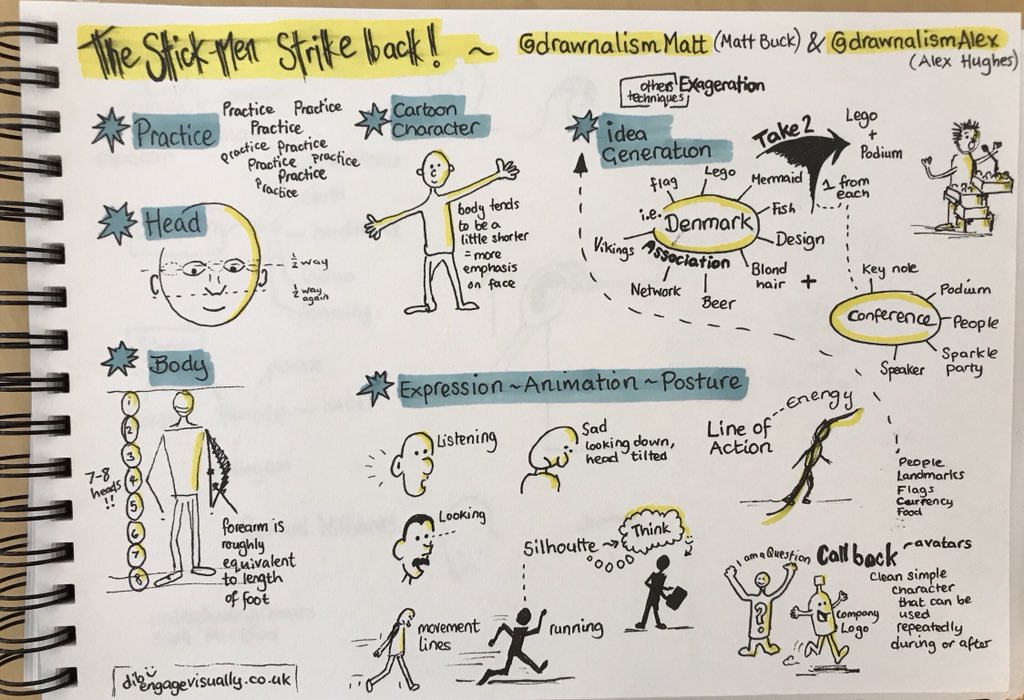 The Stick-Men Strike back! ~ @drawnalismMatt (Matt Buck) & @drawnalismAlex
(Alex Hughes)
Practice
Practice Practice
Practice
Practice Practice
Practice Practice
Practice
Practice
Cartoon
Character
body tends
to be a
little shorter
= more
emphasis
on face
others Exageration
techniques
idea
Generation
Take 2
Lego
+
Podium
1 from
each
flag
Lego
Mermaid
i.e.
Denmark
Fish
Vikings
Association
Design
Network
Beer
Blond
hair +
Key note
Podium
Conference
People
Sparkle
party
Speaker
Head
1/2 way
1/2 way
again
Body
1
2
3
4
5
6
7
8
7-8
heads
!!
forearm is
roughly
equivalent
to length
of foot
Expression ~ Animation ~ Posture
Listening
Sad
looking down,
head tilted
Looking
Silhoutte
Think
movement
lines
running
Line of
Action
Energy
People
Landmarks
Flags
Currency
Food
I am a Question
?
Call back
avatars
Company
Logo
Clean simple
character
that can be
used
repeatedly
during or after
engagevisually.co.uk